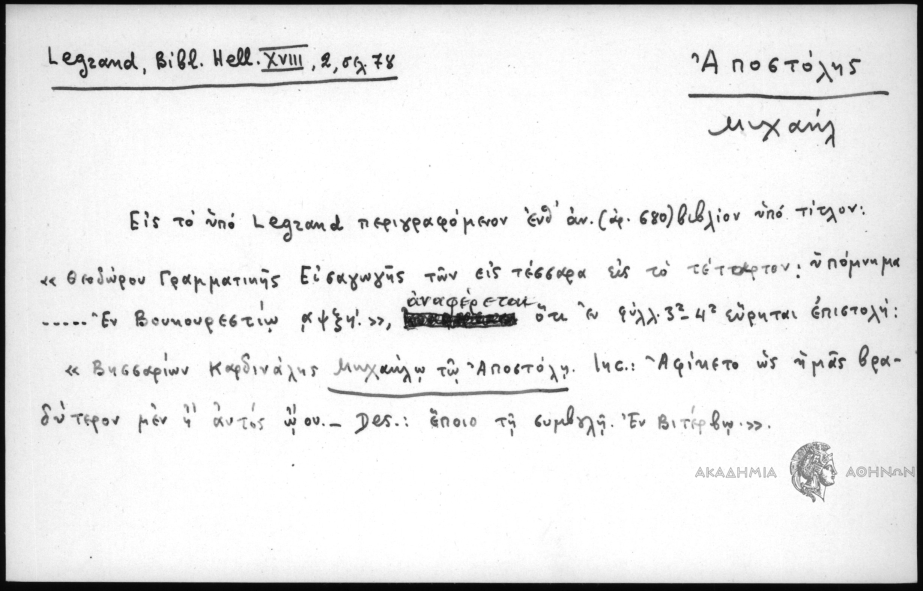 Legrand, Bibl. Hell. XVIII, 2, σελ. 78
Ἀποστόλης
Μιχαήλ
Εἰς τὸ ὑπό Legrand περιγραφόμενον ἐνθ' ἀν. (ἀρ. 680) βιβλίον ὑπό τίτλον:
« Θεοδώρου Γραμματικῆς Εἰσαγωγῆς τῶν εἰς τέσσαρα εἰς τὸ τέτταρτον: ὑπόμνημα
..... Ἐν Βουκουρεστίῳ ͵αψξη'. », ἀναφέρεται ὅτι ἐν φύλλ. 3α-4α εὕρηται ἐπιστολή:
« Βησσαρίων Καρδινάλης Μιχαήλῳ τῷ Ἀποστόλῃ. Inc.: Ἀφίκετο ὡς ἡμᾶς βρα-
δύτερον μὲν ἤ αὐτός ᾤου. – Des.: ἕποιο τῇ συμβουλῇ. Ἐν Βιτέρβῳ. ».
ΑΚΑΔΗΜΙΑ ΑΘΗΝΩΝ